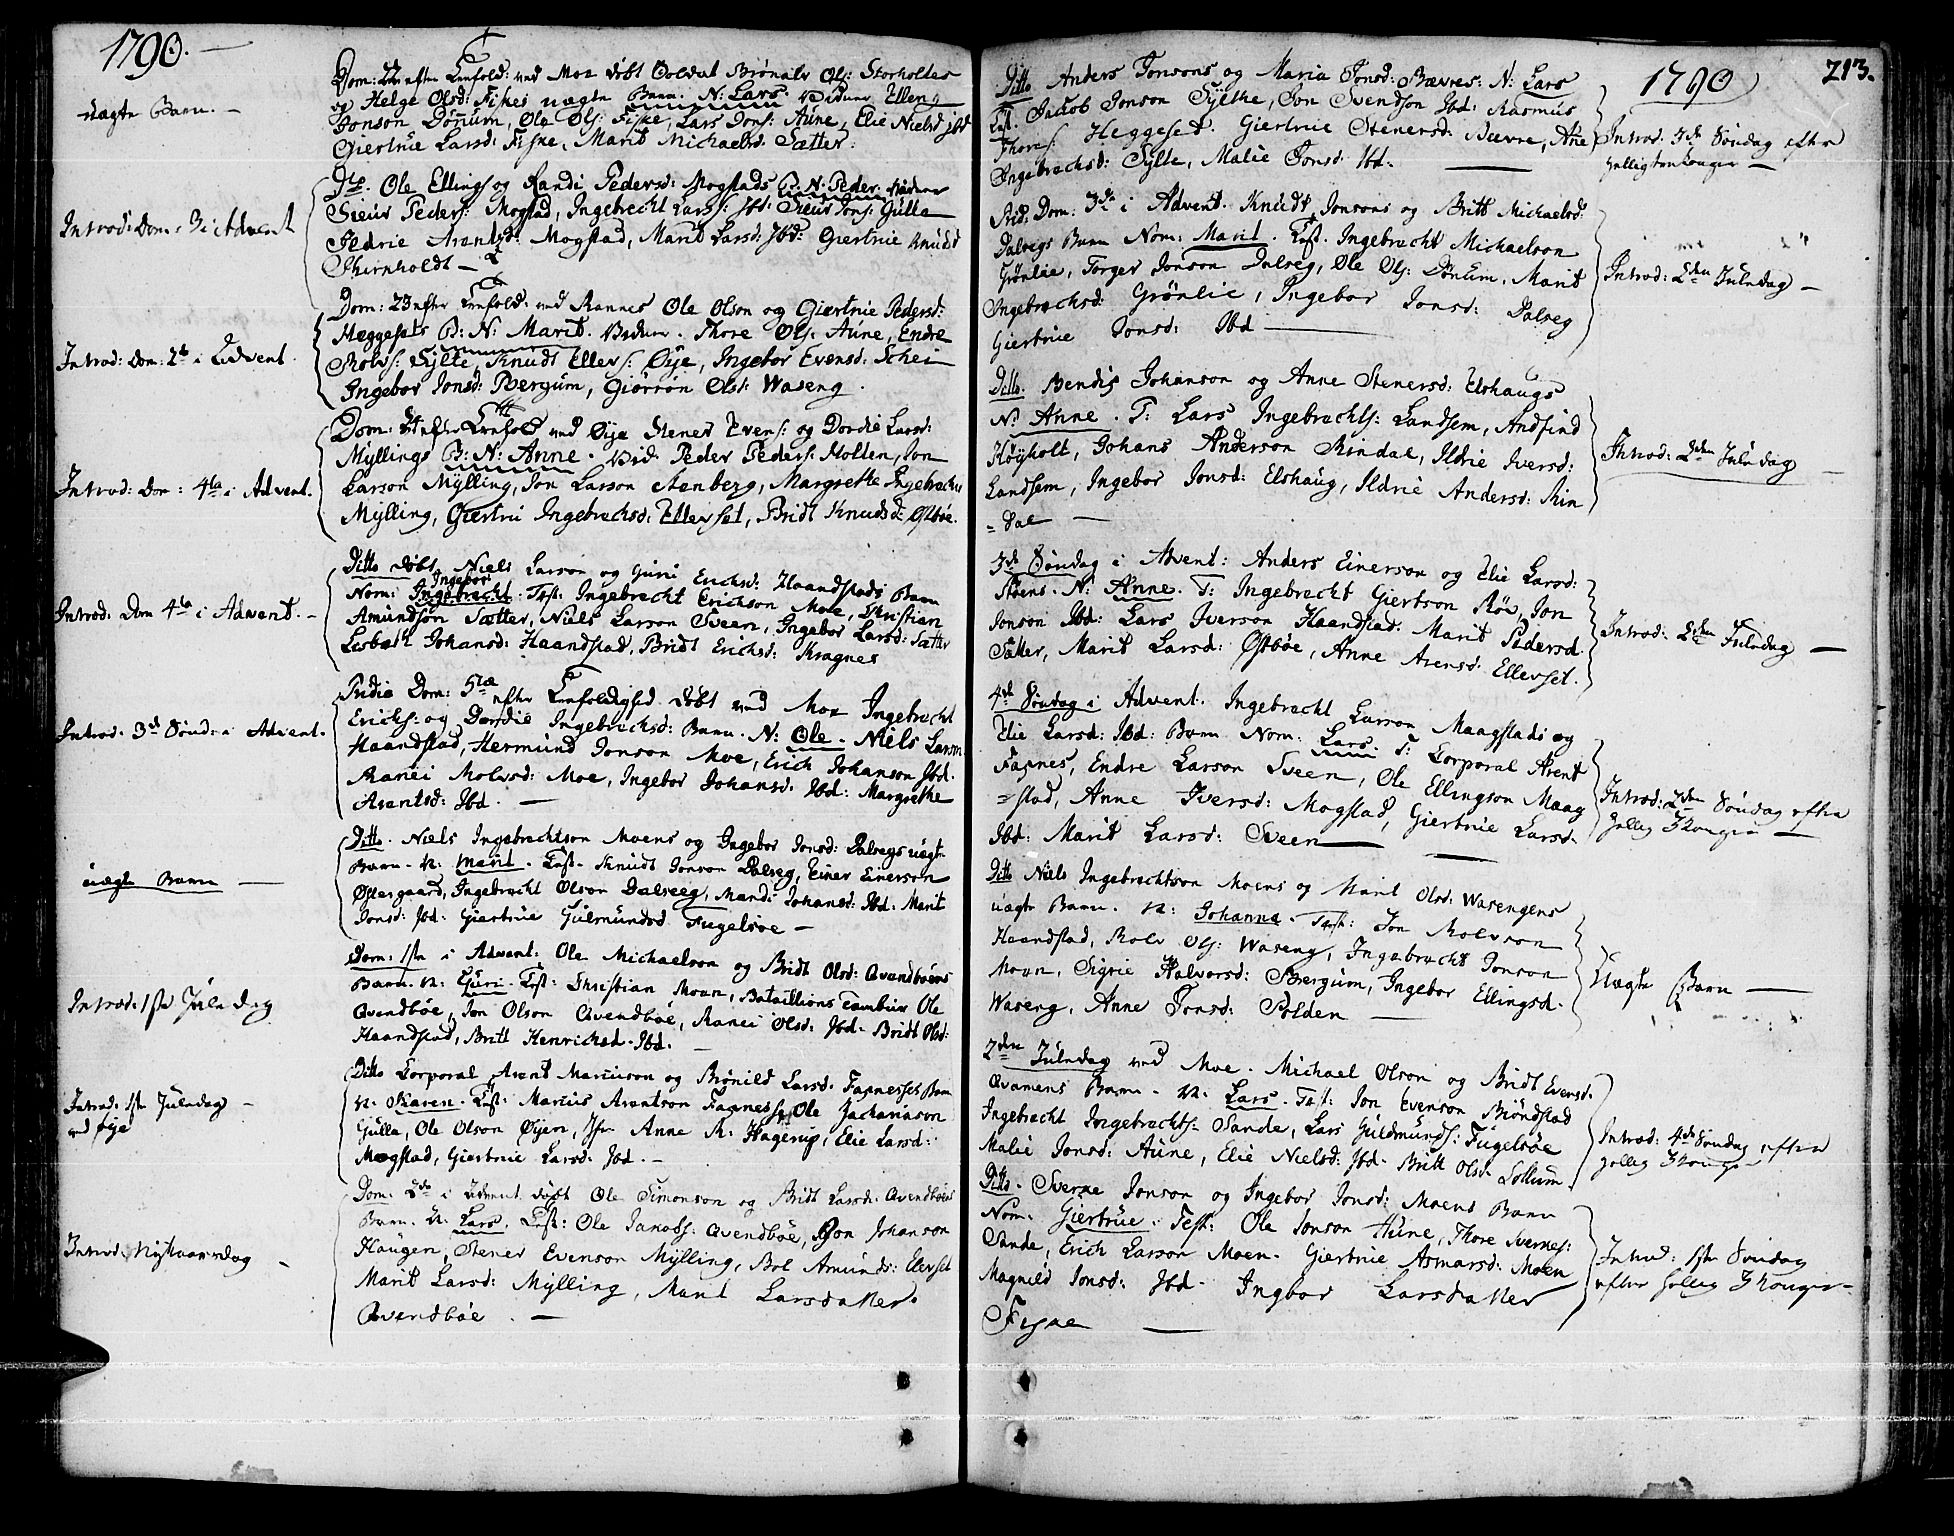 1790.
uægte Barn. –
Dom: 22 efter Trefold: ved Moe døbt Joldul Brønild Ols: Storholtes
og Helge Olsd: Fiskes uægte Barn. N: Lars. Vidner Elleng
Jonson Dönnum, Ole Ols: Fiske, Lars Jons: Aüne, Elie Nielsd Jbd
Giertrüe Larsd: Fiske, Marit Michaelsd. Sætter.
Introd: Dom: 3 i Advent
Do. Ole Ellings og Randi Pedersd: Mogstads B. N. Peder. Vidner
Sieür Peders: Mogstad, Ingebrecht Larss: Jbd: Sieür Jons: Gülla
Sildrie Arantsd: Mogstad, Marit Larsd: Jbd: Giertrüe Knüdsd
Skirnholdt –
Introd: Dom: 2de i Advent.
Dom: 23 efter Trefold: ved Rannes Ole Olson og Giertrüe Pedersd:
Heggesets B: N: Marit. Vidner. Thore Ols: Aüne, Endre
Rolvs: Sylte, Knüdt Ellevs: Øye, Ingebor Evensd: Schei
Ingebor Jonsd: Bergüm, Giorron Olsd: Waseng.
Introd: Dom: 4de i Advent.
Dom: 24 efter Trefold ved Øye Stener Evens: og Dordie Larsd:
Myllings B: N: Anne. Vid: Peder Peders: Holten, Jon
Larson Mylling, Jon Larson Aenberg, Margrethe Ingebrechts
Mylling, Giertrü Ingebrechsd: Ellevset, Bridt Knüdsd: Østbøe.
Introd: Dom 4de i Advent. –
Ditto døbt Niels Larson og Guri Erichsd: Haandstads Barn
Nom: Ingebor Ingebrecht. Test: Ingebrecht Erichson Moe, Christian
Amündson Sætter, Niels Larson Sveen, Ingebor Larsd: Sætter
Lisbeth Johansd: Haandstad, Bridt Erichsd: Kragnes
Introd: 3de Sönd: i Advent.
Tredie Dom: 5te efter Trefoldighed døbt ved Moe Ingebrecht
Erichs: og Dordie Ingebrechsd: Barn. N: Ole. Niels Larson
Haandstad, Hermünd Jonson Moe, Erich Johanson Jbd.
Ranei Rolvsd: Moe, Ingebor Johansd. Jbd: Margrethe
Arantsd: Jbd. –
uægte Barn –
Ditto. Niels Ingebrechtson Moens og Ingebor Jonsd: Dalsegs uægte
Barn. N: Marit. Test. Knüdt Jonson Dalseg, Einer Einerson
Østergaard, Ingebrecht Olson Dalseeg, Mandi Johansd: Jbd. Marit
Jonsd: Jbd: Giertrüe Gülmündsd Fugelsöe –
Introd: 1ste Jüledag
Dom: 1ste i Advent: Ole Michaelson og Bridt Olsd: Qvendbøens
Barn. N: Guri. Test: Christian Moen, Bataillions Tambür Ole
Qvendbøe, Jon Olson Qvendbøe, Ranei Olsd: Jbd. Bridt Olsd:
Haandstad, Britt Henrichsd. Jbd. –
Introd: 1ste Juledag –
ved Øye
Ditto Corporal Arent Marcüson og Brönild Larsd. Fagnesset Barn
N: Karen. Test: Marcüs Arentson Fagness, Ole Zachariason
Gülla, Ole Olson Øyen, Jfr Anne M: Hagerup, Elie Larsd:
Mogstad, Giertrüe Larsd: Jbd. –
Introd: Nytaarsdag –
Dom: 2de i Advent døbt Ole Simonson og Bridt Larsd: Qvendbøens
Barn. N: Lars. Test: Ole Jacobs: Qvendbøe, Jon Johanson
Haugen, Stener Evenson Mylling, Bol Amünds: Elevset
Marit Larsd: Mylling, Marit Larsdatter
Qvendbøe. –
213.
1790
Ditto Anders Jonsons og Maria Jonsd: Bævres: N: Lars
Test. Jacob Jonson Sylthe, Jon Svendson Jbd: Rasmus
Thores: Heggeset. Giertrüe Stenersd: Bævre, Ane
Ingebrechsd: Sylte, Malie Jonsd: Jbd. –
Introd: 3de Søndag efter
Helligtrekonger –
Trid: Dom: 3de i Advent. Knüdt Jonsons og Britt Michaelsd:
Dalsegs Barn Nom: Marit. Test. Ingebrecht Michaelson
Grønlie, Torger Jonson Dalseg, Ole Ols: Dønüm, Marit
Ingebrechsd: Grønlie, Ingebor Jonsd: Dalseg
Giertrüe Jonsd: Jbd –
Introd: 2den Juledag –
Ditto. Bendis Johanson og Anne Stenersd: Elshaugs
N: Anne. T: Lars Ingebrechts: Landsem, Andfind
Høyholt, Johans Anderson Rindal, Ildrie Iversd:
Landsem, Ingebor Jonsd: Elshaug, Ildrie Andersd: Rin
=dal –
Introd: 2den Juledag –
3de Søndag i Advent: Anders Einerson og Elie Larsd:
Röens. N: Anne. T: Ingebrecht Giertson Röe, Jon
Jonson Jbd: Lars Iverson Haandstad. Marit Pedersd.
Sætter, Marit Larsd: Østbøe, Anne Arensd. Ellevset.
Introd: 2den Juledag –
4de Søndag i Advent. Ingebrecht Larson Maagstads og
Elie Larsd: Jbd: Barn Nom: Lars. T: Corporal Arent
Fagnes, Endre Larson Sveen, Ole Ellingson Maag
=stad, Anne Iversd: Mogstad, Giertrüe Larsd.
Jbd: Marit Larsd: Sveen –
Introd: 2den Søndag efter
Hellig 3 Konger –
Ditto Niels Ingebrechtson Moens og Marit Olsd: Wasengens
uægte Barn. N: Johanna. Test: Jon Rolvson
Haandstad, Rolv Ols: Waseng, Ingebrecht Jonson
Moen, Sigrie Halvorsd: Bergüm, Ingebor Ellingsd.
Waseng, Anne Jonsd: Polden –
Uægte Barn –
2den Juledag ved Moe. Michael Olson og Bridt Evensd.
Qvamens Barn. N: Lars. Test: Jon Evenson Biøndstad
Ingebrecht Ingebrechts: Sande, Lars Güldmünds: Fugelsøe
Malie Jonsd: Aüne, Elie Nielsd: Jbd. Britt Olsd. Sollüm.
Introd: 4de Søndag efter
Hellig 3 Konger
Ditto. Sverke Jonson og Ingebor Jonsd: Moens Barn
Nom: Giertrüe. Test: Ole Jonson Aüne, Thore Svernes:
Sande, Erich Larson Moen. Giertrüe Asmarsd: Moen
Magnild Jonsd: Jbd. Ingbor Larsdatter
Fiske –
Introd: 1ste Søndag
efter Hellig 3 Konger –